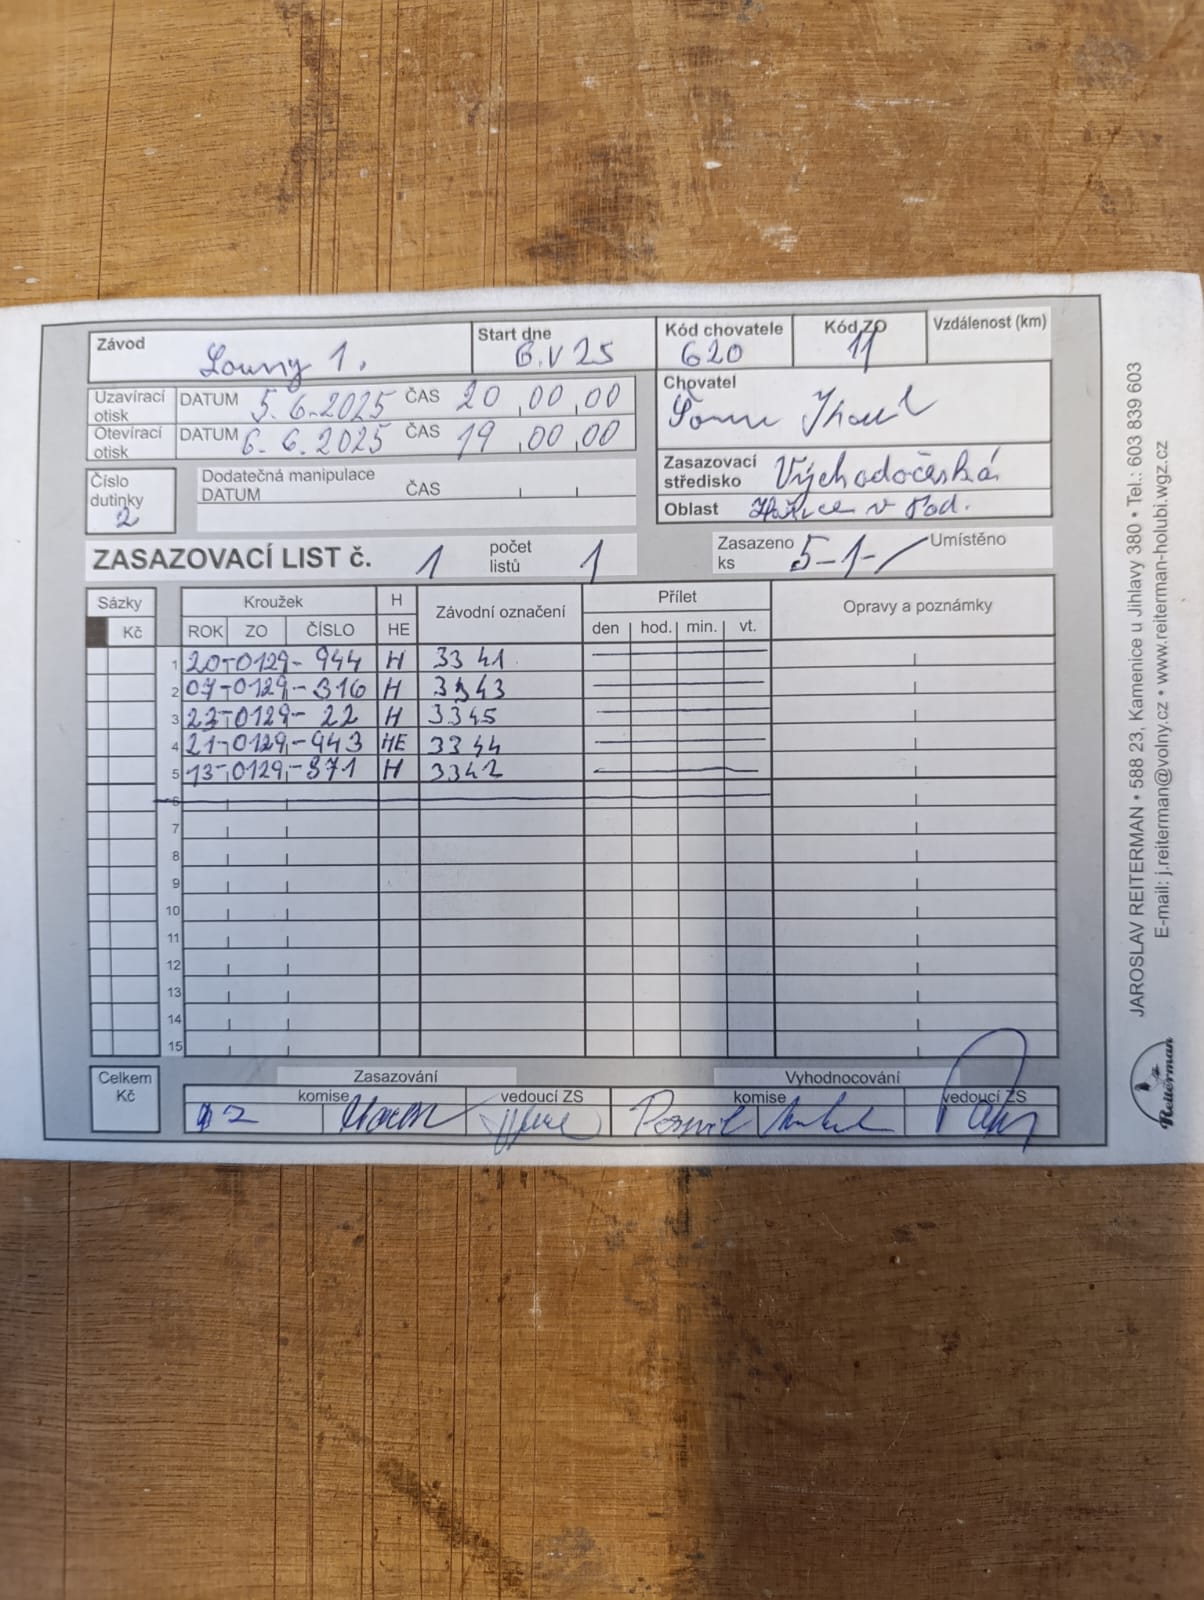 Závod Louny 1. Start dne 6.V 25 Kód chovatele 620 Kód ZO 11 Vzdálenost (km)
Uzavírací otisk DATUM 5.6.2025 ČAS 20,00,00
Otevírací otisk DATUM 6.6.2025 ČAS 19,00,00
Chovatel
Číslo dutinky 2
Dodatečná manipulace
DATUM ČAS
Zasazovací středisko Východočeská
Oblast v Pod.
ZASAZOVACÍ LIST č. 1 počet listů 1 Zasazeno ks 5-1- Umístěno
Sázky Kroužek H Závodní označení Přílet Opravy a poznámky
Kč ROK ZO ČÍSLO HE den hod. min. vt.
1 20-0129-944 H 3341
2 07-0129-316 H 3343
3 23-0129-22 H 3345
4 21-0129-943 HE 3344
5 13-0129-371 H 3342
6
7
8
9
10
11
12
13
14
15
Celkem Kč
Zasazování Vyhodnocování
komise vedoucí ZS komise vedoucí ZS
JAROSLAV REITERMAN • 588 23, Kamenice u Jihlavy 380 • Tel.: 603 839 603
E-mail: j.reiterman@volny.cz • www.reiterman-holubi.wgz.cz
Reiterman